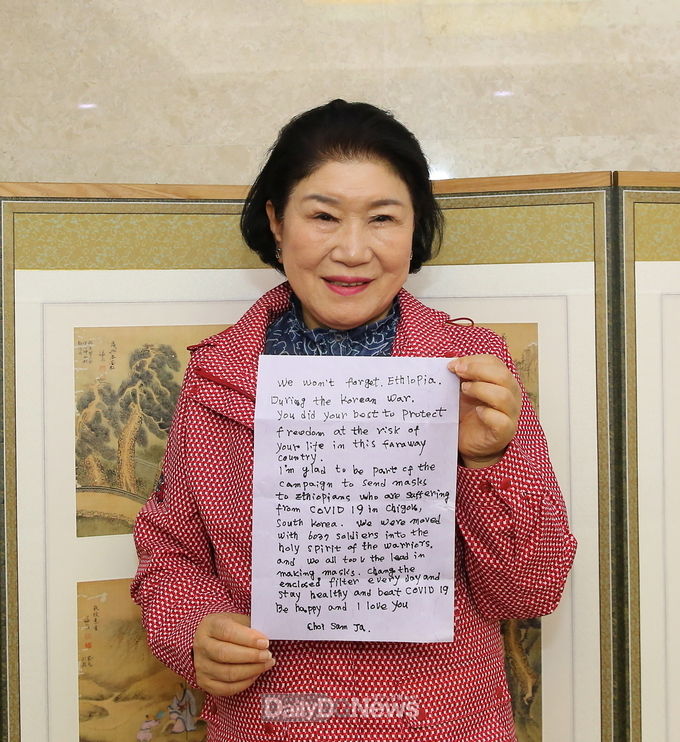 We won't forget. Ethiopia.
During the Korean War.
You did your best to protect
freedom at the risk of
your life in this faraway
country.
I'm glad to be part of the
campaign to send masks
to Ethiopians who are suffering
from COVID 19 in Chigok,
South Korea. We were moved
with 6037 soldiers into the
holy spirit of the warriors.
and we all took the lead in
making masks. Change the
enclosed filter every day and
stay healthy and beat COVID 19
Be happy and I love you
Choi Sam Ja.
DailyD News